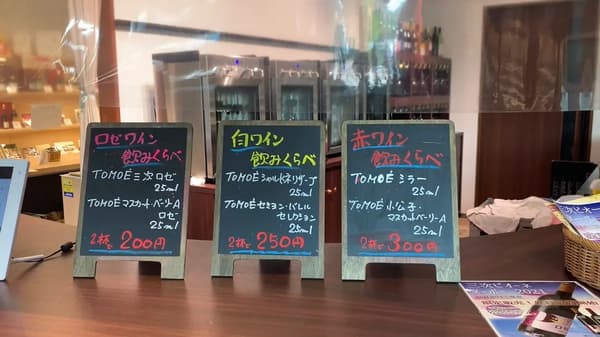 ロゼワイン
飲みくらべ
TOMOÉ 三次ロゼ
25ml
TOMOÉ マスカットベーリーA
ロゼ
25ml
2杯で 200円
白ワイン
飲みくらべ
TOMOÉ シャルドネリザーブ
25ml
TOMOÉ セミヨン・バレル
セレクション
25ml
2杯で 250円
赤ワイン
飲みくらべ
TOMOÉ シラー
25ml
TOMOÉ 小公子・
マスカットベーリーA
25ml
2杯で 300円
三次ピオーネ
2021